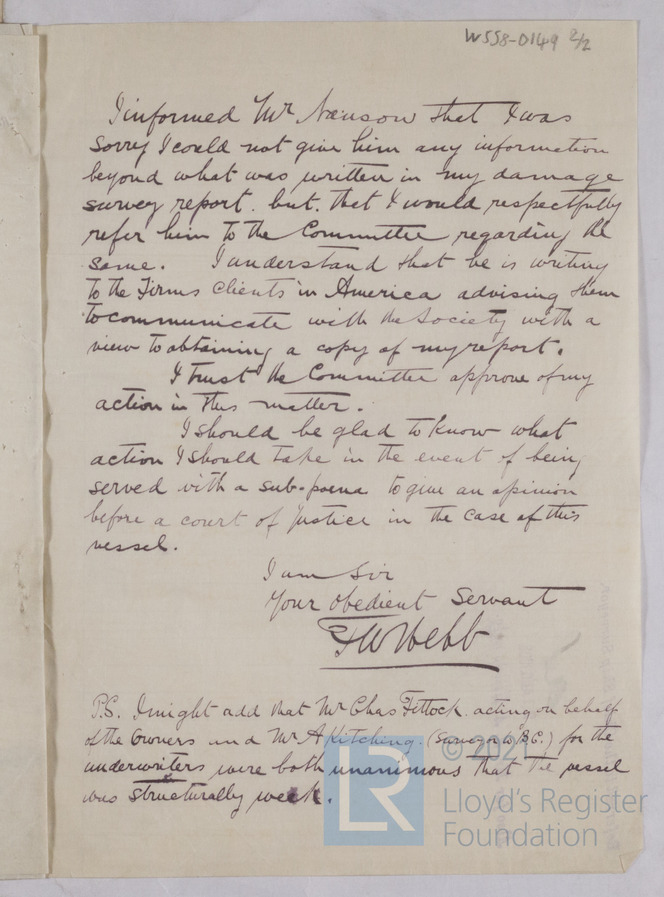 W558-0149 2/2
I informed Mr Nanson that I was
sorry I could not give him any information
beyond what was written in my damage
survey report. but. that I would respectfully
refer him to the Committee regarding the
same. I understand that he is writing
to the Firms clients in America advising them
to communicate with the Society with a
view to obtaining a copy of my report.
I trust the Committee approve of my
action in this matter.
I should be glad to know what
action I should take in the event of being
served with a sub-poena to give an opinion
before a court of Justice in the case of this
vessel.
I am Sir
Your Obedient Servant
FW Webb
P.S. I might add that Mr Chas Fittock. acting on behalf
of the Owners and Mr A Kitching. (Surveyor to B.C.) for the
underwriters were both unanimous that the vessel
was structurally weak.
© 2021
LR
Lloyd's Register
Foundation